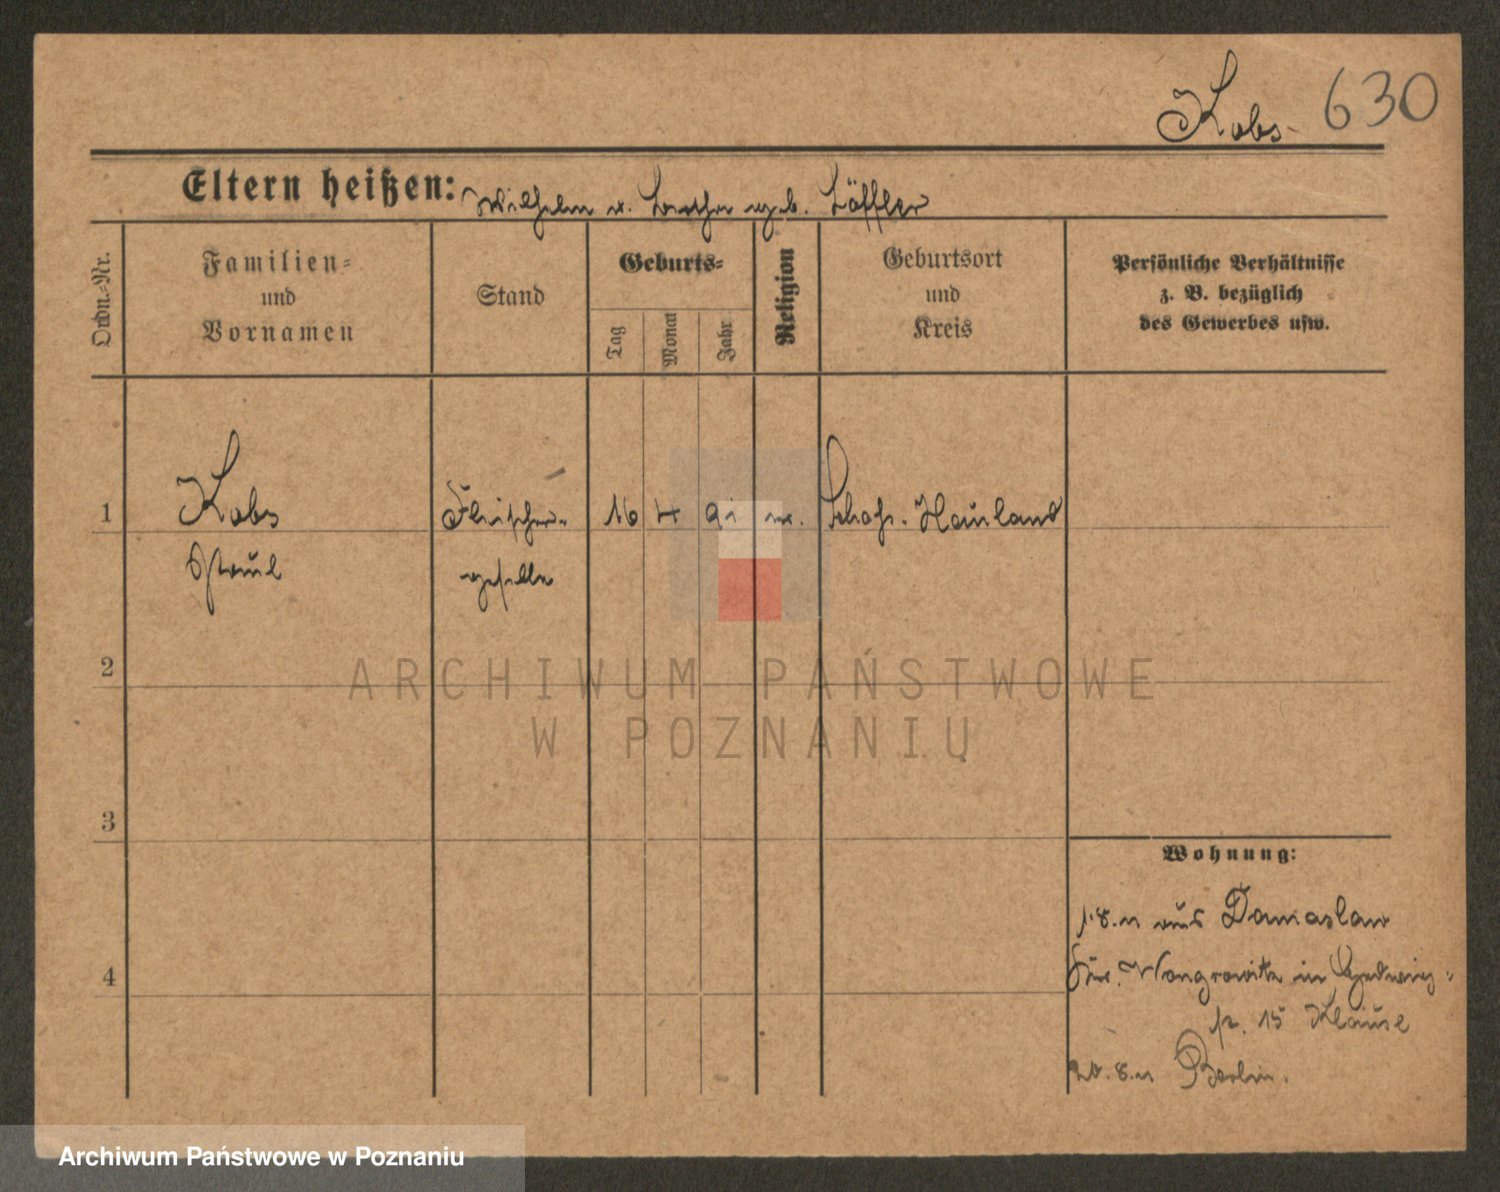 Kobs 630
Eltern heißen: Wilhelm u. Bertha geb. Löffler
Ordn.-Nr.
Familien-
und
Vornamen
Stand
Geburts-
Tag
Monat
Jahr
Religion
Geburtsort
und
Kreis
Persönliche Verhältnisse
z. B. bezüglich
des Gewerbes usw.
1 Kobs Fleischer- 16 4 91 ev. Hauland
Paul geselle
2
3
4
Wohnung:
aus Damaslaw
Kr. Wongrowitz in
15 Klause
Berlin.
ARCHIWUM PAŃSTWOWE
W POZNANIU
Archiwum Państwowe w Poznaniu